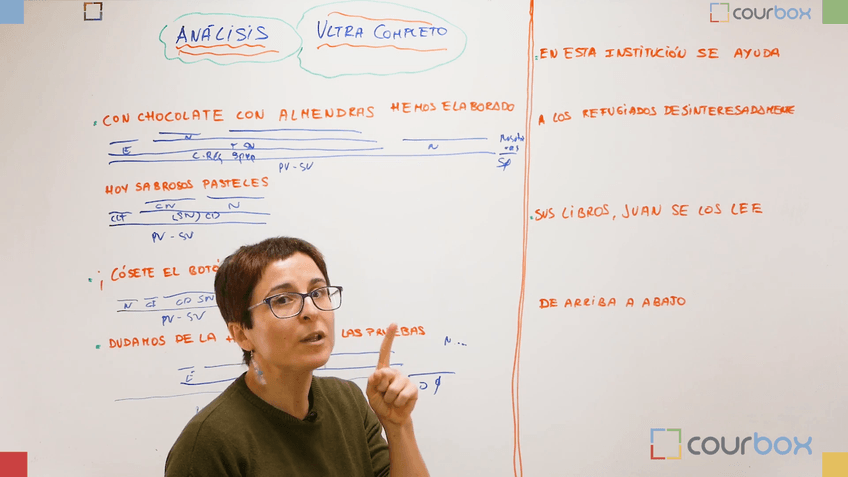 ANÁLISIS ULTRA COMPLETO
courbox
. CON CHOCOLATE CON ALMENDRAS HEMOS ELABORADO
N
E + SN N
C. Reg Sprep SØ
PV-SV
HOY SABROSOS PASTELES
CN N
CCT (SN) CD
PV-SV
. ¡CÓSETE EL
N CI CD SN
PV-SV
. DUDAMOS DE LA LAS PRUEBAS
N...
E
. EN ESTA INSTITUCIÓN SE AYUDA
A LOS REFUGIADOS DESINTERESADAMENTE
. SUS LIBROS, JUAN SE LOS LEE
DE ARRIBA A ABAJO
courbox